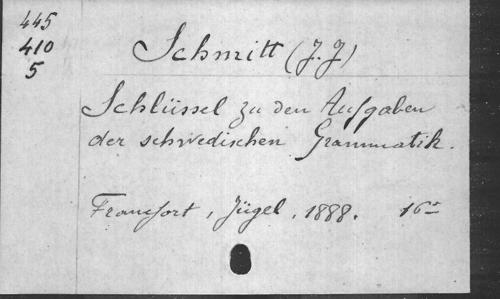 445
410
5
Schmitt (J. J)
Schlüssel zu den Aufgaben
der schwedischen Grammatik.
Francfort, Jügel, 1888. 16º